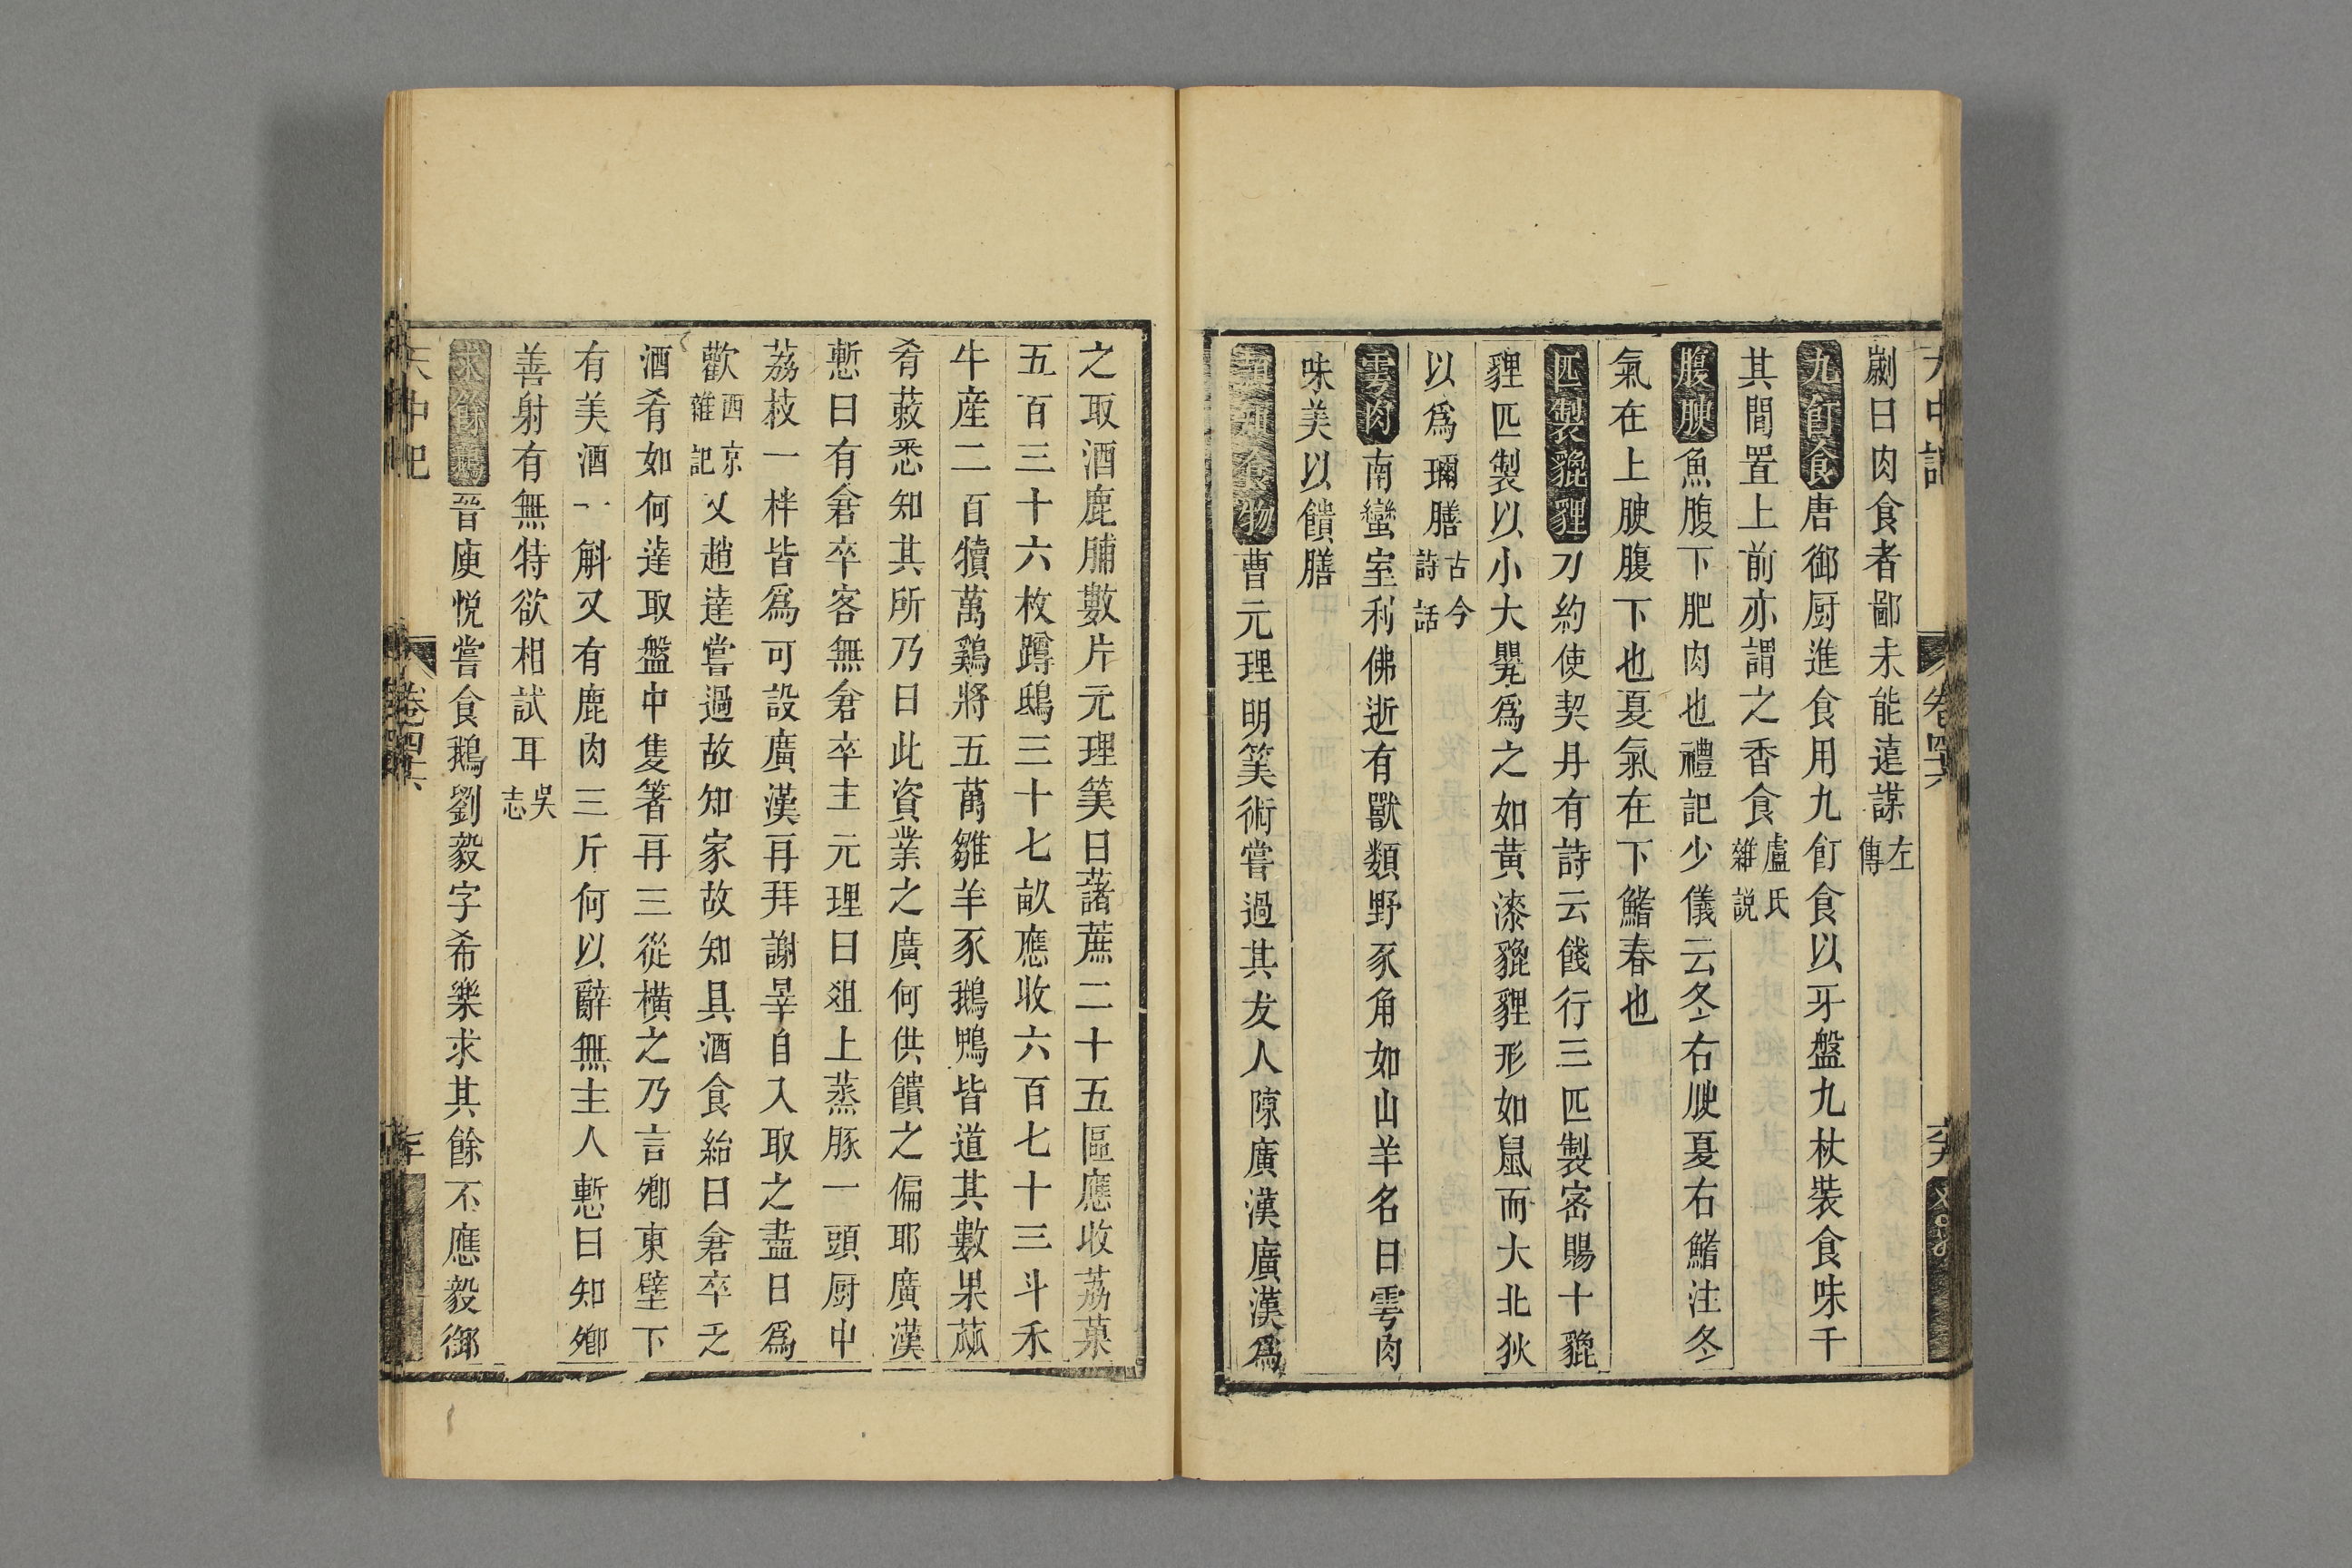 劌曰肉食者鄙未能遠謀左傳
九飣食唐御厨進食用九飣食以牙盤九枚裝食味千
其間置上前亦謂之香食盧氏雜説
腹腴魚腹下肥肉也禮記少儀云冬右腴夏右鰭注冬
氣在上腴腹下也夏氣在下鰭春也
匹製貔貍刀約使契丹有詩云餞行三匹製宻賜十貔
貍匹製以小大甖爲之如黄漆貔貍形如鼠而大北狄
以爲珍膳古今詩話
雩肉南蠻室利佛逝有獸類野豕角如山羊名曰雩肉
味美以饋膳
知食物曹元理明筭術嘗過其友人陳廣漢廣漢爲
之取酒鹿脯數片元理筭曰藷蔗二十五區應收荔菓
五百三十六枚蹲鴟三十七畝應收六百七十三斗禾
牛産二百犢萬鷄將五萬雛羊豕鵝鴨皆道其數果蓏
肴蔌悉知其所乃曰此資業之廣何供饋之偏耶廣漢
慙曰有倉卒客無倉卒主元理曰俎上蒸豚一頭厨中
荔枝一柈皆爲可設廣漢再拜謝辠自入取之盡日爲
歡西京雜記又趙達嘗過故知家故知具酒食紿曰倉卒乏
酒肴如何達取盤中隻箸再三從横之乃言鄉東壁下
有美酒一斛又有鹿肉三斤何以辭無主人慙曰知鄉
善射有無特欲相試耳吳志
求餘鵝晉庾悅嘗食鵝劉毅字希樂求其餘不應毅御
天中記
卷四十六